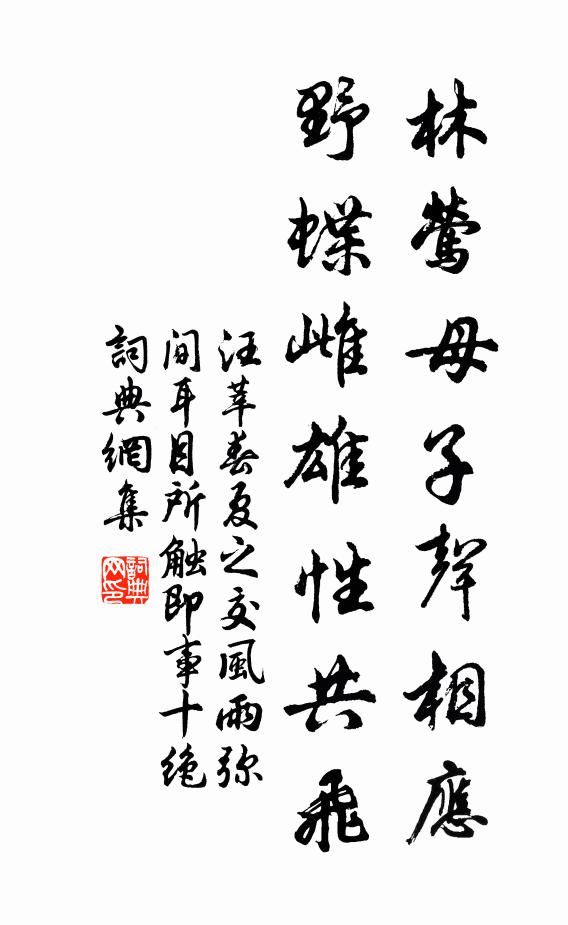 林鶯母子聲相應
野蝶雌雄性共飛
汪莘春夏之交風雨弥
间耳目所触即事十绝
詞典網集
詞典网印